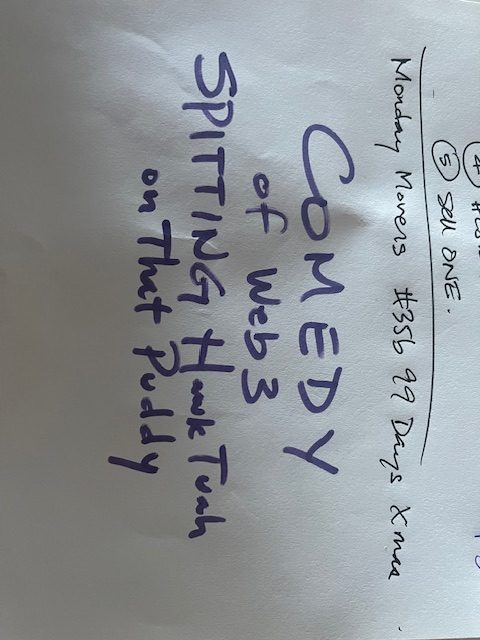 ⑤ Sell ONE.
Monday Movers #356 99 Days Xmas
COMEDY
of Web3
SPITTING Hawk Tuah
on That Puddy